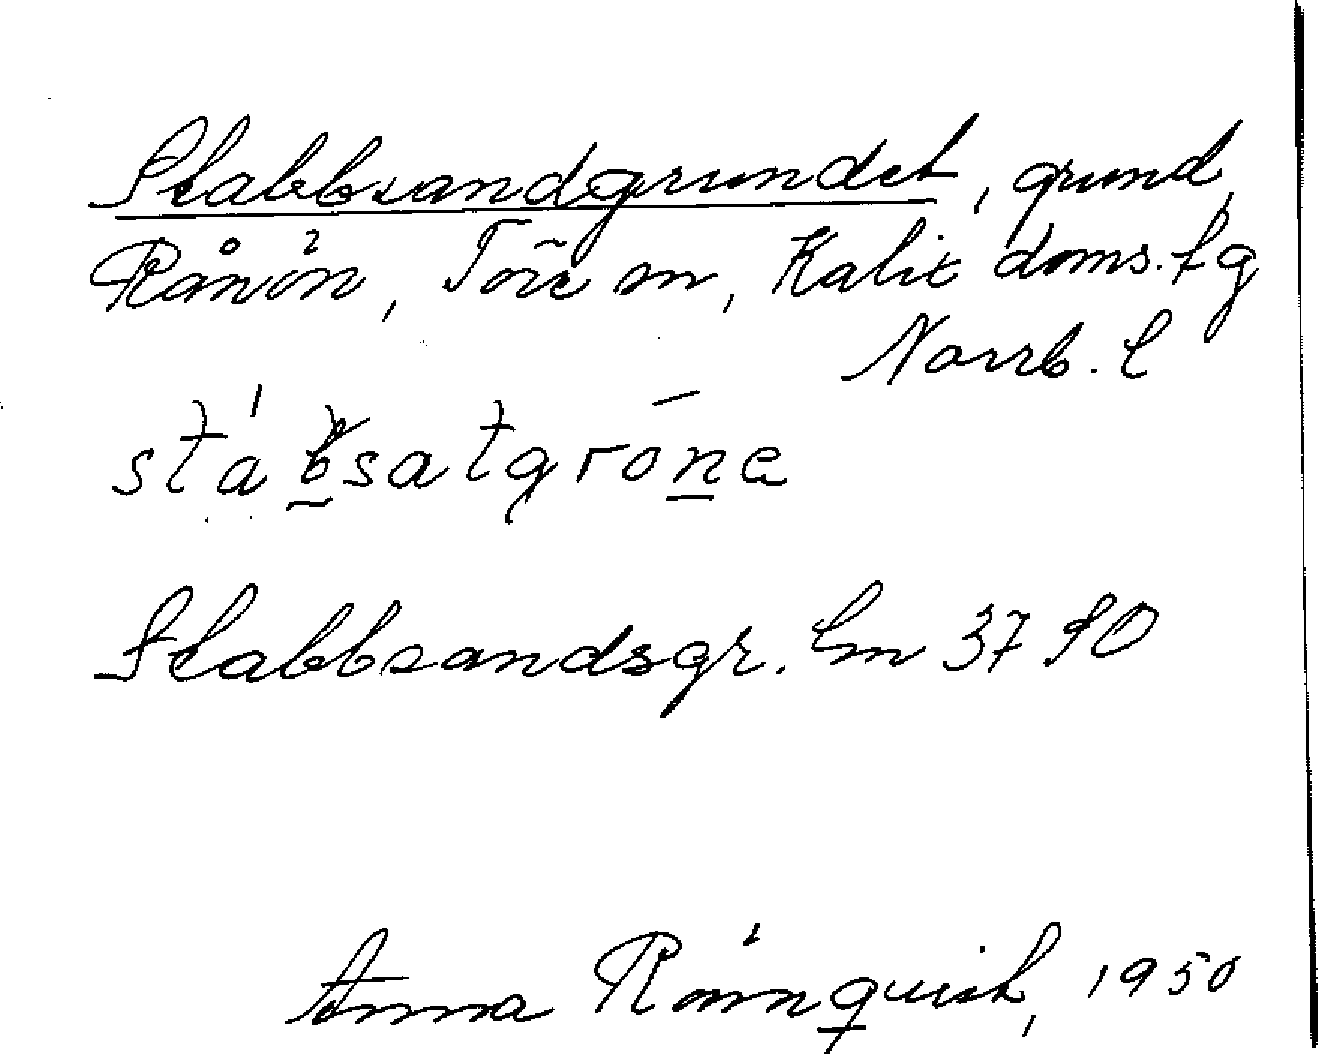 Stabbsandgrundet, grund,
Rånön, Töre sn, Kalix doms. tg
Norrb. l
stabsatgrone
Stabbsandsgr. lm 3790
Anna Rönnqvist, 1950